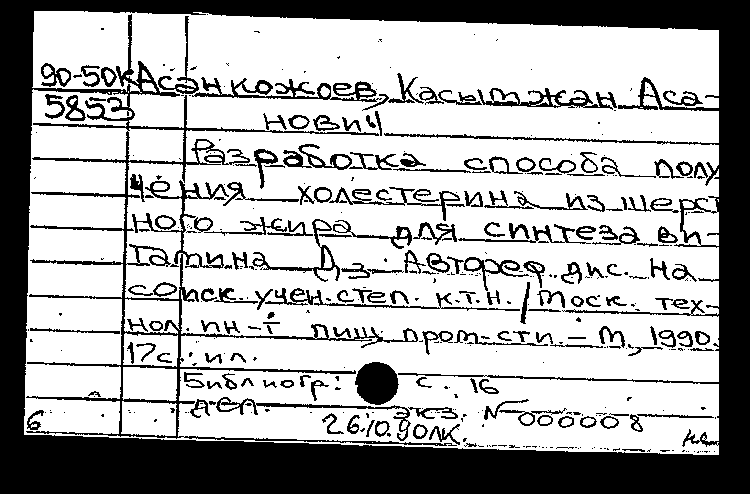 90-50К Асанкожоев, Касымжан Аса-
5853 нович
Разработка способа полу
чения холестерина из шерст
ного жира для синтеза ви-
тамина Д3. Автореф. дис. на
соиск. учен. степ. к.т.н. / Моск. тех-
нол. ин-т пищ. пром-сти. – М., 1990.
17с.: ил.
Библиогр.: с. 16
ДСП. экз. N 000008
6 26.10.90ЛК.